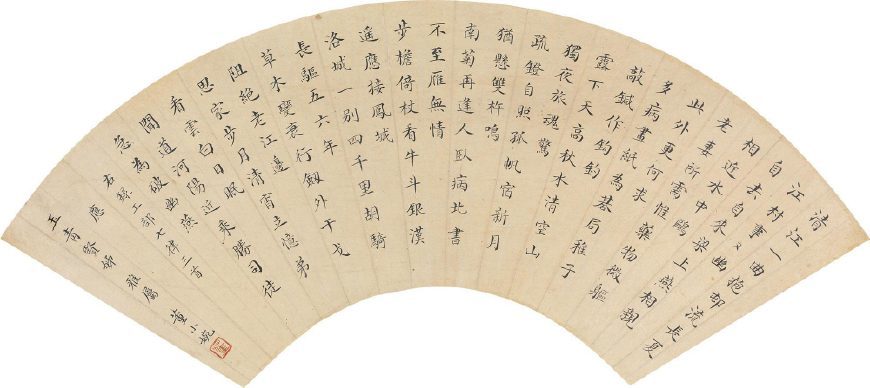 清江一曲抱邨流長夏
江村事〻幽
自去自來梁上燕相親
相近水中鷗
老妻所需惟藥物微軀
此外更何求
多病畫紙為棊局稚子
敲鍼作釣鉤
露下天高秋水清空山
獨夜旅魂驚
疏鐙自照孤帆宿新月
猶懸雙杵鳴
南菊再逢人臥病北書
不至雁無情
步檐倚杖看牛斗銀漢
遙應接鳳城
洛城一別四千里胡騎
長驅五六年
草木變衰行劒外干戈
阻絕老江邊
思家步月清宵立憶弟
看雲白日眠
聞道河陽近乘勝司徒
急為破幽燕
右錄工部七律三首
應
玉青賢姊雅屬 董小宛